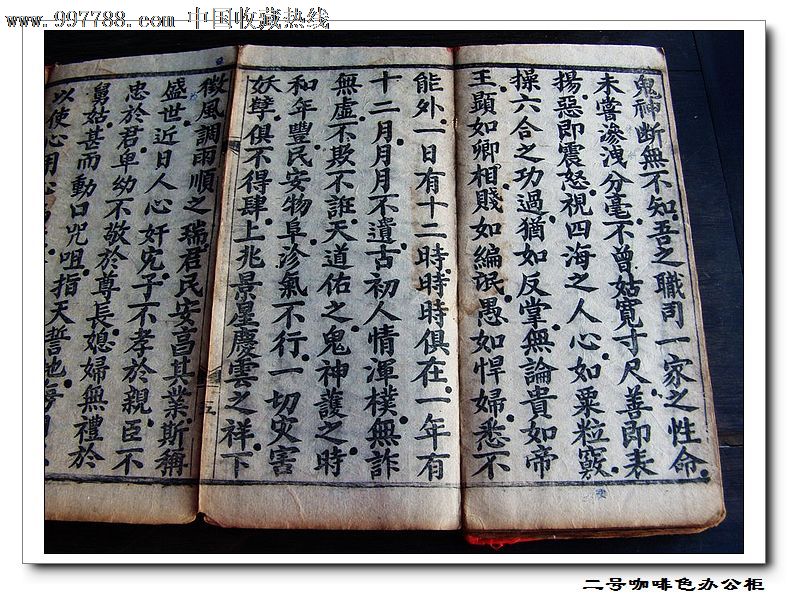 www.997788.com 中国收藏热线
鬼神断無不知吾之職司一家之性命
未嘗滲洩分毫不曾姑寛寸尺善即表
揚惡即震怒視四海之人心如粟粒竅
操六合之功過猶如反掌無論貴如帝
王顕如卿相賤如編氓愚如悍婦悉不
能外一日有十二時時時俱在一年有
十二月月月不遺古初人情渾樸無詐
無虚不欺不誑天道佑之鬼神護之時
和年豐民安物阜沴氣不行一切灾害
妖孽俱不得肆上兆景星慶雲之祥下
徴風調雨順之瑞君民安富其業斯稱
盛世近日人心奸宄子不孝於親臣不
忠於君卑幼不敬於尊長媳婦無禮於
舅姑甚而動口咒咀指天誓地
以使心用心
五
二号咖啡色办公柜